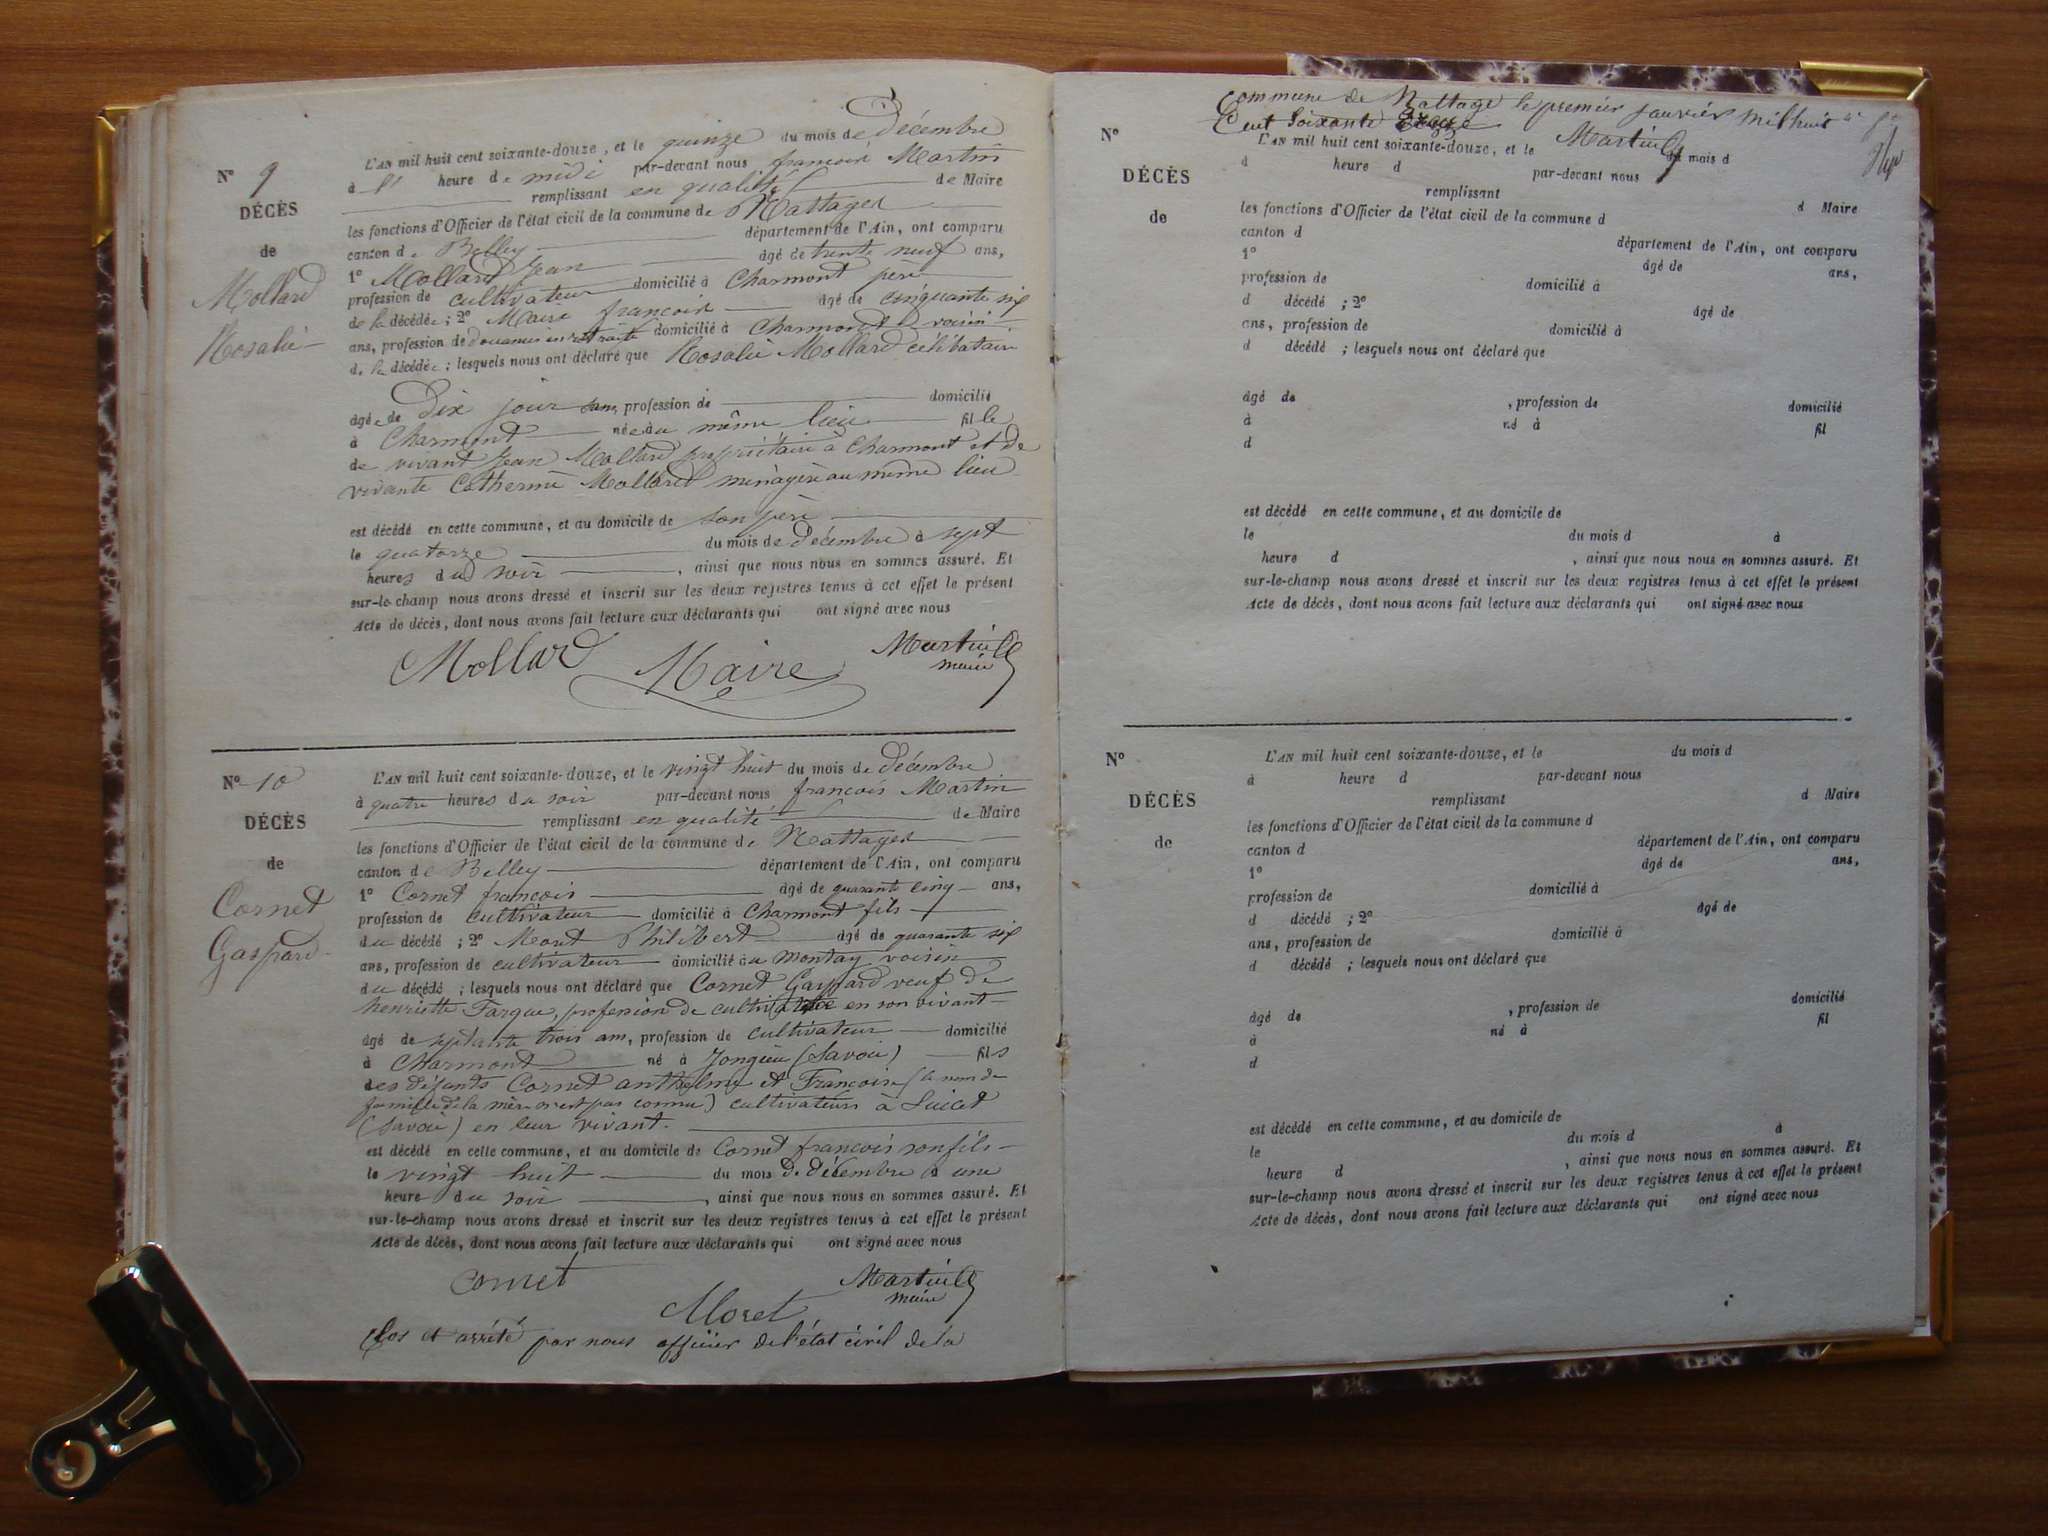 N° 9
DÉCÈS
de
Mollard
Rosalie
L'AN mil huit cent soixante-douze, et le quinze du mois de Décembre
à l' heure de midi par-devant nous françois Martin
remplissant en qualité de Maire
les fonctions d'Officier de l'état civil de la commune de Nattages
canton de Belley département de l'Ain, ont comparu
1° Mollard Jean âgé de trente neuf ans,
profession de cultivateur domicilié à Charmont père
de la décédée ; 2° Maire françois âgé de cinquante six
ans, profession de douanier en retraite domicilié à Charmont voisin
de la décédée ; lesquels nous ont déclaré que Rosalie Mollard célibataire
âgée de Dix jours ans, profession de domicilié
à Charmont née au même lieu fille
de vivant Jean Mollard propriétaire à Charmont et de
vivante Catherine Mollard ménagère au même lieu
est décédé en cette commune, et au domicile de son père
le quatorze du mois de Décembre à sept
heures du soir , ainsi que nous nous en sommes assuré. Et
sur-le-champ nous avons dressé et inscrit sur les deux registres tenus à cet effet le présent
Acte de décès, dont nous avons fait lecture aux déclarants qui ont signé avec nous
Mollard Maire Martin
maire
N° 10
DÉCÈS
de
Cornet
Gaspard
L'AN mil huit cent soixante-douze, et le vingt huit du mois de Décembre
à quatre heures du soir par-devant nous francois Martin
remplissant en qualité de Maire
les fonctions d'Officier de l'état civil de la commune de Nattages
canton de Belley département de l'Ain, ont comparu
1° Cornet françois âgé de quarante cinq ans,
profession de cultivateur domicilié à Charmont fils
du décédé ; 2° Philibert âgé de quarante six
ans, profession de cultivateur domicilié au montay voisin
du décédé ; lesquels nous ont déclaré que Cornet Gaspard veuf de
henriette Fargue, profession de en son vivant
âgé de septante trois ans, profession de cultivateur domicilié
à Charmont né à Jongieu (Savoie) fils
des défunts Cornet anthelme et Francoise (le nom de
famille de la mère n'est pas connu) cultivateurs à
(Savoie) en leur vivant.
est décédé en cette commune, et au domicile de Cornet francois son fils
le vingt huit du mois De décembre à une
heure du soir , ainsi que nous nous en sommes assuré. Et
sur-le-champ nous avons dressé et inscrit sur les deux registres tenus à cet effet le présent
Acte de décès, dont nous avons fait lecture aux déclarants qui ont signé avec nous
Cornet Moret Martin
maire
Clos et arrêté par nous officier de l'état civil de la
Commune de Nattage le premier janvier mil huit
Cent Soixante Treize Martin
N°
DÉCÈS
de
L'AN mil huit cent soixante-douze, et le du mois d
à heure d par-devant nous
remplissant d Maire
les fonctions d'Officier de l'état civil de la commune d
canton d département de l'Ain, ont comparu
1° âgé de ans,
profession de domicilié à
d décédé ; 2° âgé de
ans, profession de domicilié à
d décédé ; lesquels nous ont déclaré que
âgé de , profession de domicilié
à né à fil
d
est décédé en cette commune, et au domicile de
le du mois d à
heure d , ainsi que nous nous en sommes assuré. Et
sur-le-champ nous avons dressé et inscrit sur les deux registres tenus à cet effet le présent
Acte de décès, dont nous avons fait lecture aux déclarants qui ont signé avec nous
N°
DÉCÈS
de
L'AN mil huit cent soixante-douze, et le du mois d
à heure d par-devant nous
remplissant d Maire
les fonctions d'Officier de l'état civil de la commune d
canton d département de l'Ain, ont comparu
1° âgé de ans,
profession de domicilié à
d décédé ; 2° âgé de
ans, profession de domicilié à
d décédé ; lesquels nous ont déclaré que
âgé de , profession de domicilié
à né à fil
d
est décédé en cette commune, et au domicile de
le du mois d à
heure d , ainsi que nous nous en sommes assuré. Et
sur-le-champ nous avons dressé et inscrit sur les deux registres tenus à cet effet le présent
Acte de décès, dont nous avons fait lecture aux déclarants qui ont signé avec nous